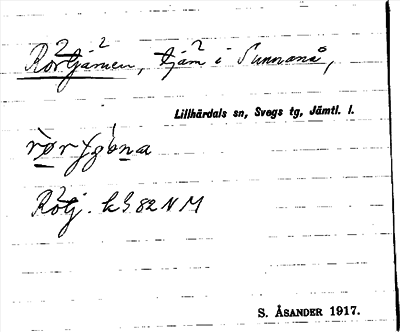 Rörtjärnen, tjärn i Sunnanå,
Lillhärdals sn, Svegs tg, Jämtl. l.
Rötj. k 9.82 N M
S. ÅSANDER 1917.